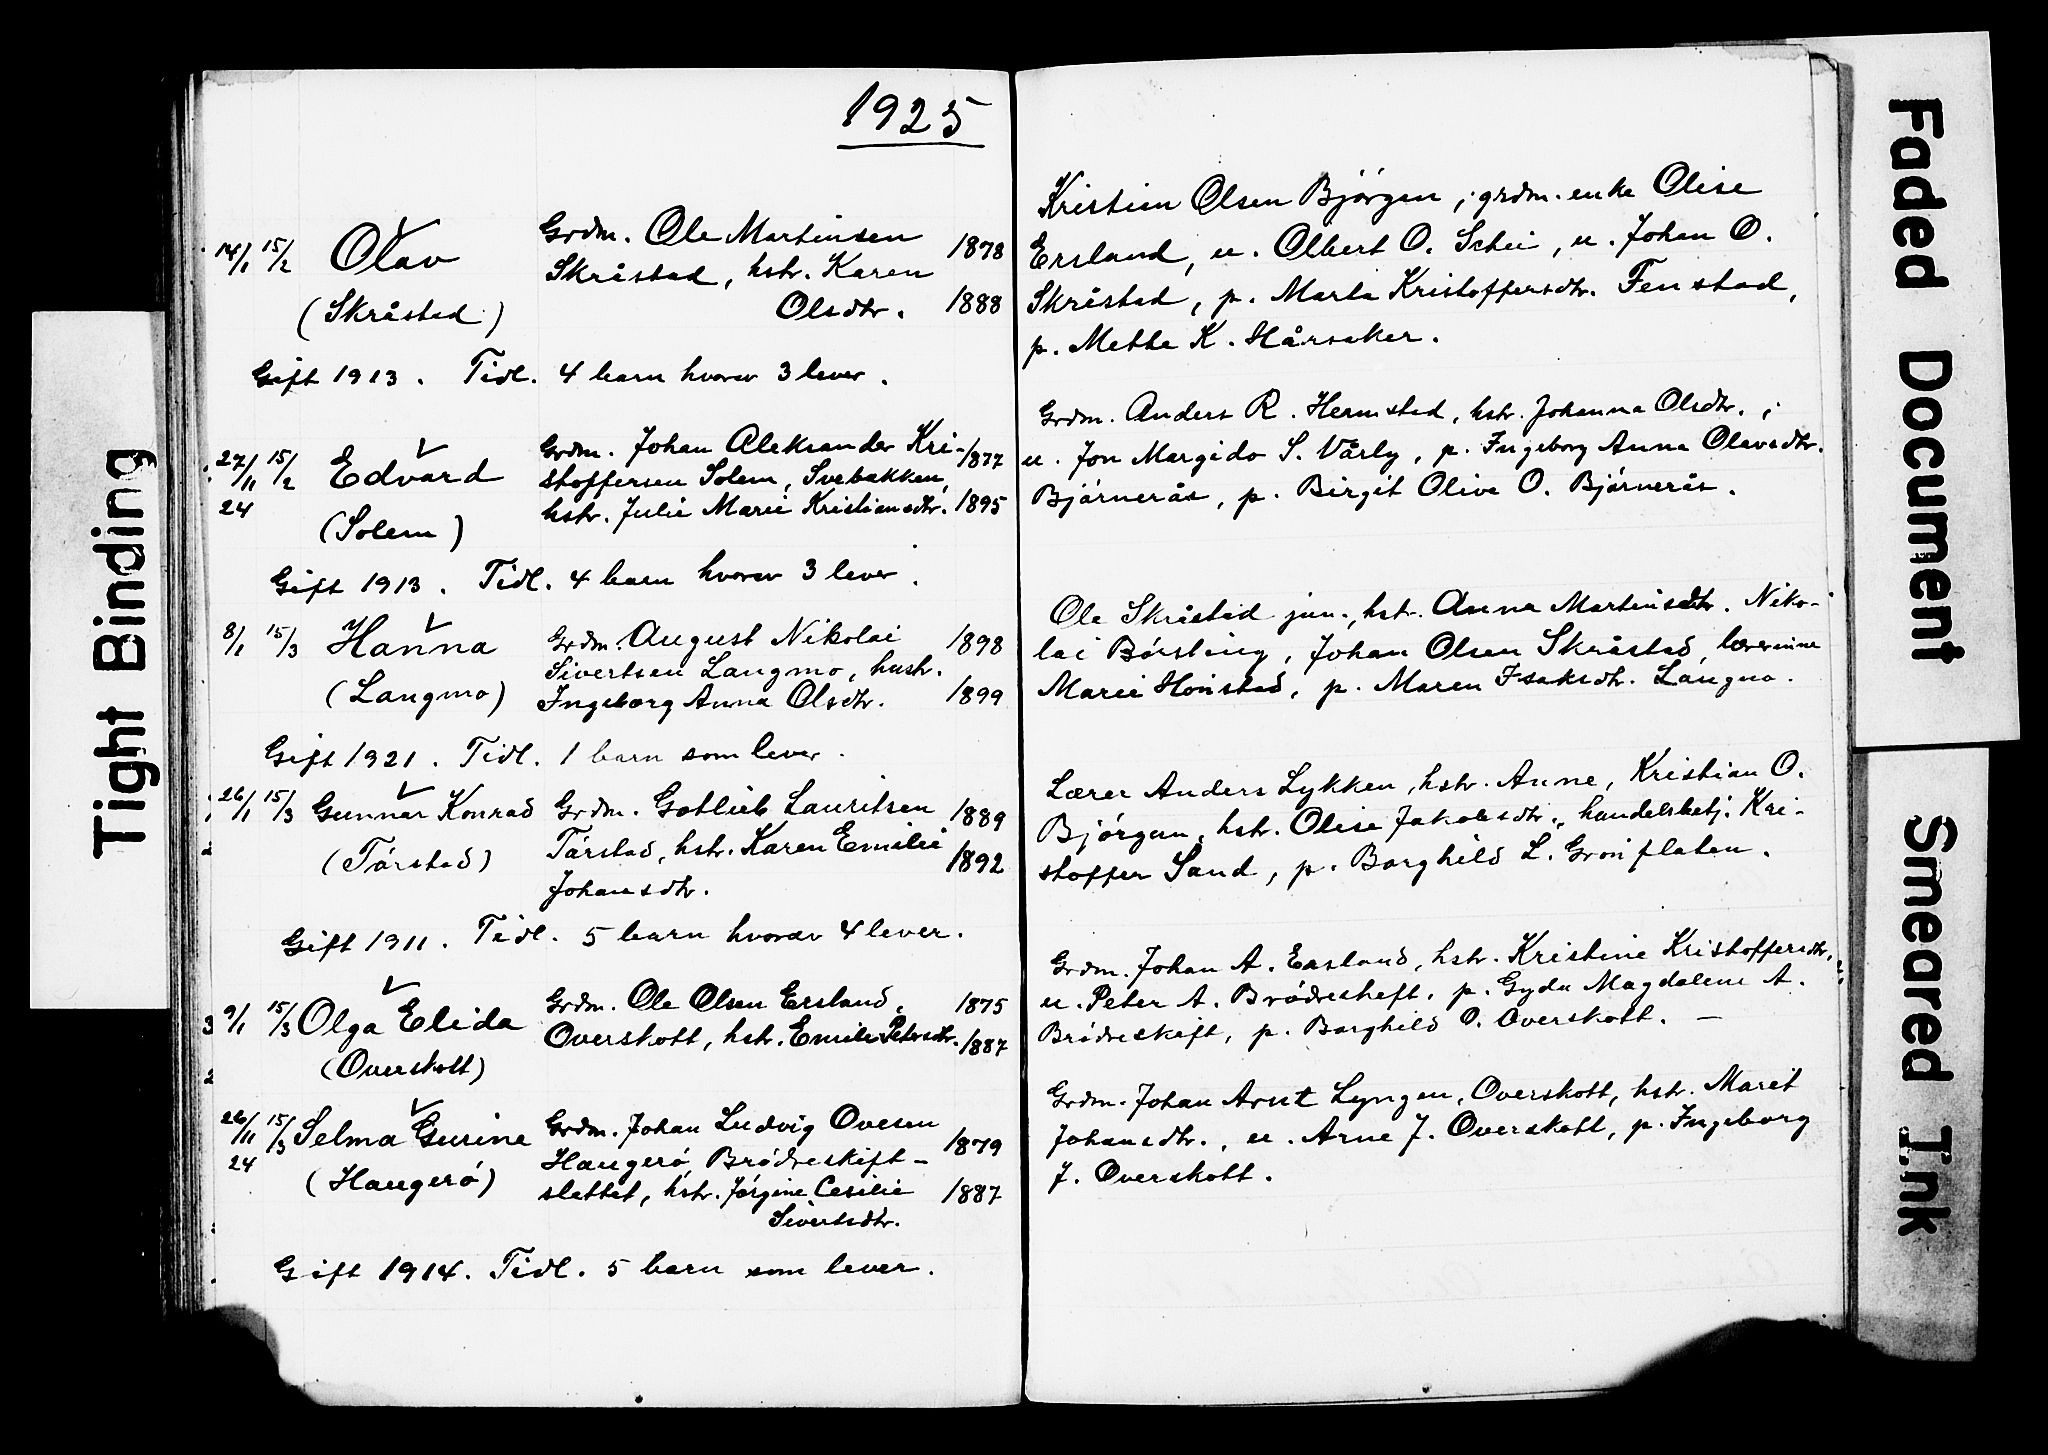 1925
14/1 15/2 Olav Grdm. Ole Martinsen 1878
Skråstad, hstr. Karen
(Skråstad) Olsdtr. 1888
Gift 1913. Tidl. 4 barn hvorav 3 lever.
27/11 24 15/2 Edvard Grdm. Johan Aleksander Kri- 1877
stoffersen Solem, Svebakken,
(Solem) hstr. Julie Marie Kristiansdtr. 1895
Gift 1913. Tidl. 4 barn hvorav 3 lever.
8/1 15/3 Hanna Grdm. August Nikolai 1898
Sivertsen Langmo, hustr.
(Langmo) Ingeborg Anna Olsdtr. 1899
Gift 1921. Tidl. 1 barn som lever.
26/1 15/3 Gunnar Konrad Grdm. Gotlieb Lauritsen 1889
(Tårstad) Tårstad, hstr. Karen Emilie 1892
Johansdtr.
Gift 1911. Tidl. 5 barn hvorav 4 lever.
9/1 15/3 Olga Elida Grdm. Ole Olsen Ersland, 1875
Overskott, hstr. Emilie Petersdtr. 1887
(Overskott)
26/11 24 15/3 Selma Gurine Grdm. Johan Ludvig Ovesen 1879
(Haugerö) Haugerö, Brödreskift-
slettet, hstr. Jörgine Cesilie 1887
Sivertsdtr.
Gift 1914. Tidl. 5 barn som lever.
Kristian Olsen Björgen, grdm. enke Olise
Ersland, u. Olbert O. Schei, u. Johan O.
Skråstad, p. Marta Kristoffersdtr. Fenstad,
p. Mette K. Hårsaker.
Grdm. Anders R. Hermstad, hstr. Johanna Olsdtr.,
u. Jon Margido S. Vårly, p. Ingeborg Anna Olavsdtr.
Björnerås, p. Birgit Olive O. Björnerås.
Ole Skråstad jun., hstr. Anna Martinsdtr. Niko-
lai Börsting, Johan Olsen Skråstad, lærerinne
Marie Honstad, p. Maren Isaksdtr. Langmo.
Lærer Anders Lykken, hstr. Anne, Kristian O.
Björgan, hstr. Olise Jakobsdtr., handelsbetj. Kri-
stoffer Sand, p. Borghild L. Grönflaten.
Grdm. Johan A. Ersland, hstr. Kristine Kristoffersdtr.,
u. Peter A. Brödreskift, p. Gyda Magdalene A.
Brödreskift, p. Borghild O. Overskott. —
Grdm. Johan Arnt Lyngen, Overskott, hstr. Marit
Johansdtr., u. Arne J. Overskott, p. Ingeborg
J. Overskott.
Tight Binding
Faded Document
Smeared Ink